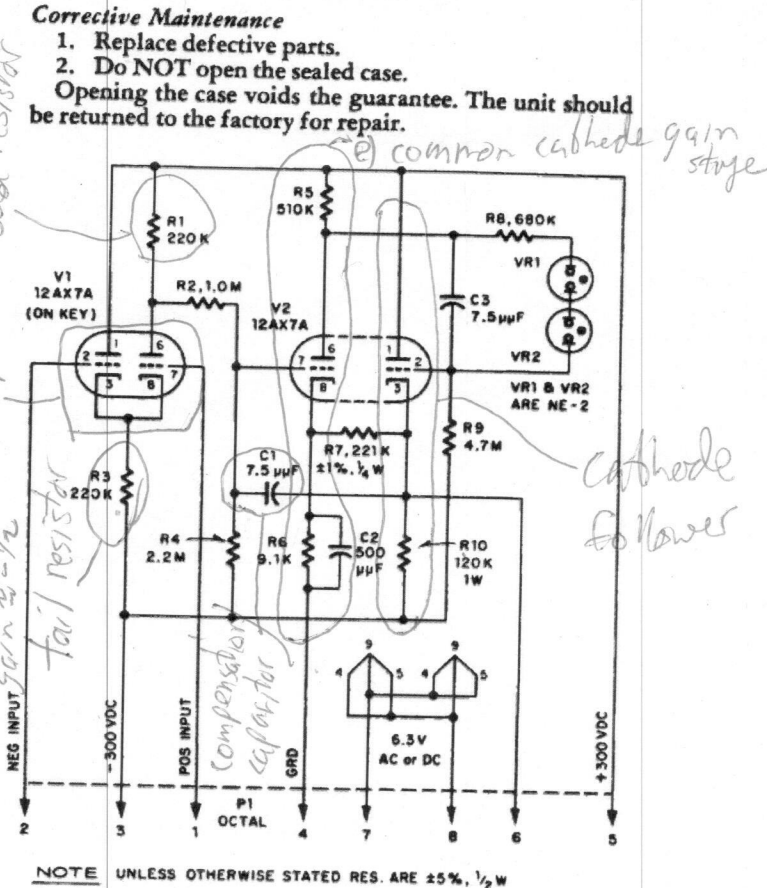 Corrective Maintenance
1. Replace defective parts.
2. Do NOT open the sealed case.
Opening the case voids the guarantee. The unit should
be returned to the factory for repair.
common cathode gain
stage
R5
510K
R1
220K
R8, 680K
VR1
V1
12AX7A
(ON KEY)
R2, 1.0M
V2
12AX7A
C3
7.5µµF
1
6
2
3
8
7
6
1
7
8
3
2
VR2
VR1 & VR2
ARE NE-2
R9
4.7M
R7, 221K
±1%, ¼ W
C1
7.5 µµF
cathode
follower
R3
220K
tail resistor
R4
2.2M
R6
9.1K
C2
500
µµF
R10
120K
1W
compensation
capacitor
9
4
5
9
4
5
6.3V
AC or DC
NEG INPUT
-300 VDC
POS INPUT
GRD
+300 VDC
P1
OCTAL
2
3
1
4
7
8
6
5
NOTE UNLESS OTHERWISE STATED RES. ARE ±5%, ½ W